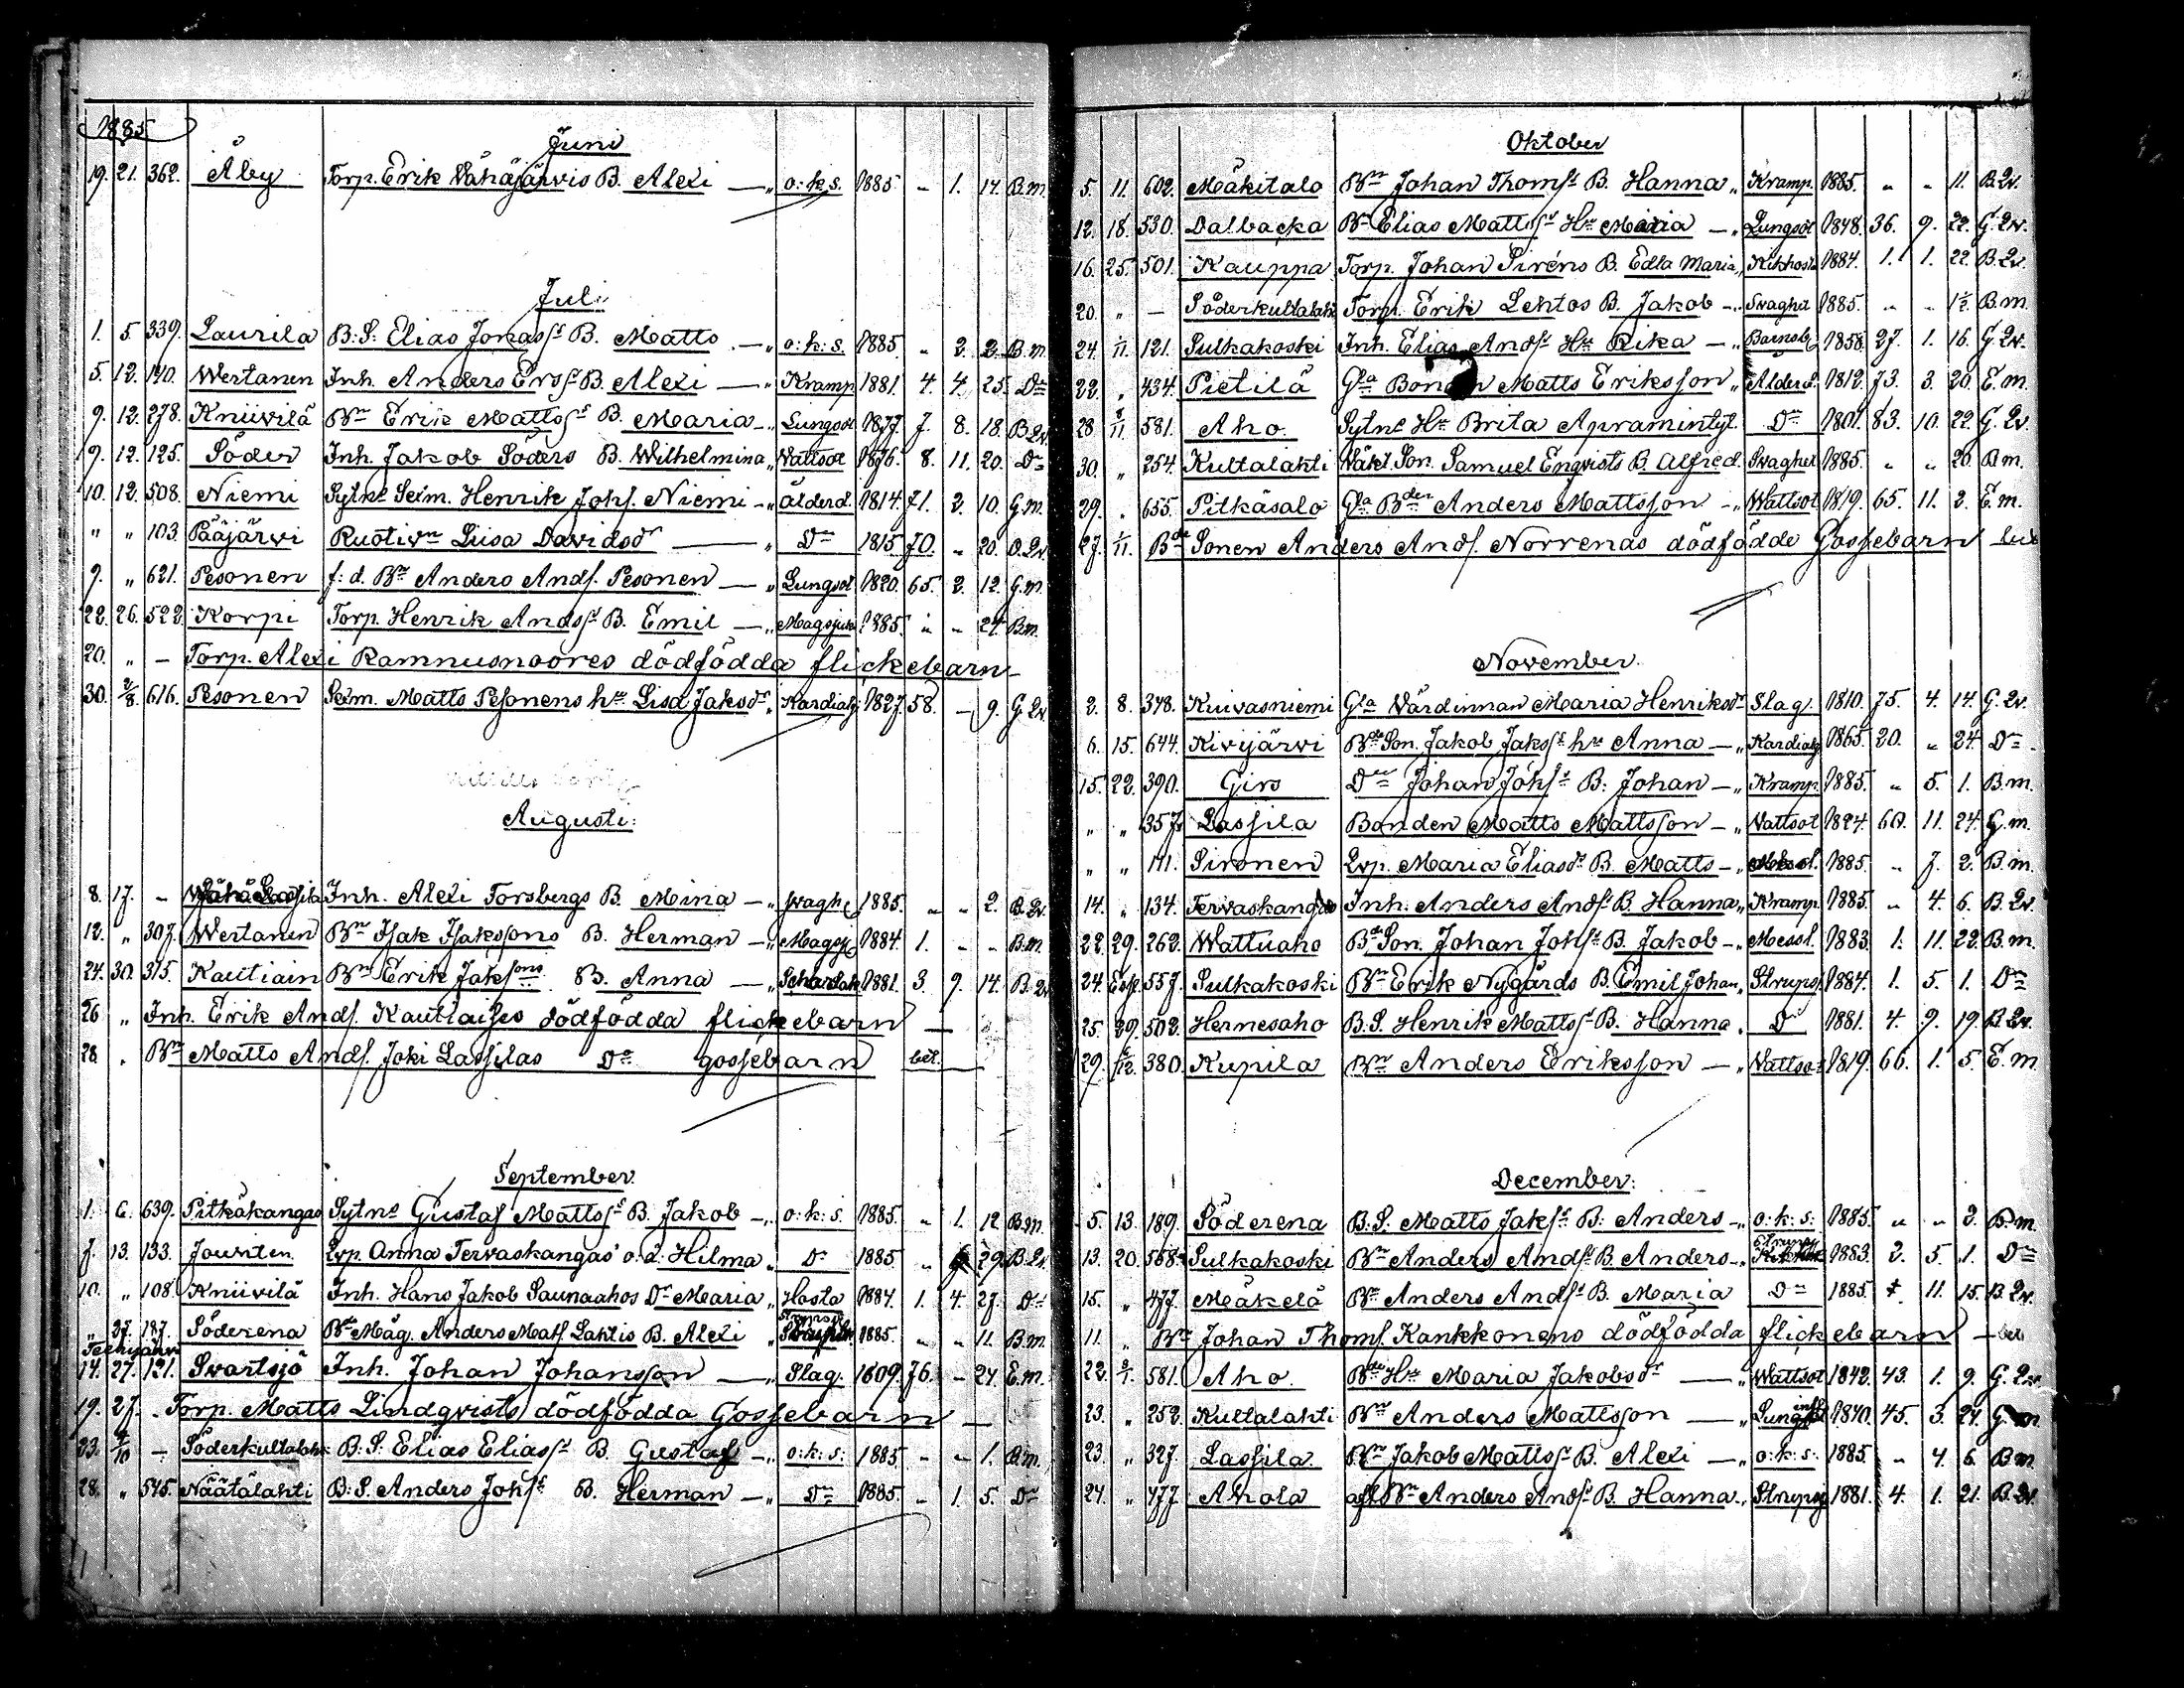 1885
Juni
19. 21. 362. Åby Torp. Erik Wähäjärwis B. Alexi — „ o: k: s. 1885. „ 1. 14. B.m.
Juli
1. 5. 339. Laurila B: S: Elias Jonass. B. Matts — „ o: k: s. 1885. „ 2. 2. B.m.
5. 12. 190. Wertanen Inh. Anders Erss. B. Alexi — „ Kramp 1881. 4. 4. 25. Do
9. 12. 278. Kniivilä Bn Erik Mattss. B. Maria — „ Lungsot 1877. 7. 8. 18. B.Qv.
9. 12. 125. Söder Inh. Jakob Söders B. Wilhelmina „ Wattsot 1876. 8. 11. 20. Do
10. 12. 508. Niemi Sytns Seim. Henrik Johs. Niemi — „ Ålderd. 1814. 71. 2. 10. G.m.
„ „ 103. Pääjärwi Ruotivn Liisa Davidsdr — „ Do 1815. 70. „ 20. O.Qv.
9. „ 621. Pesonen f: d. Bn Anders Ands. Pesonen — „ Lungsot 1820. 65. 2. 12. G.m.
22. 26. 522. Korpi Torp. Henrik Andss. B. Emil — „ Magsjuka 1885. „ „ 24. B.m.
20. „ — Torp. Alexi Ramnusnoores dödfödda flickebarn —
30. 2/8 616. Pesonen Seim. Matts Pesonens hu Lisa Jaksdr „ Kardialg. 1827. 58. — 9. G.Qv.
Augusti:
8. 17. „ Wähä Lassila Inh. Alexi Forsbergs B. Mina — „ swagh. 1885. „ „ 2. B.Qv.
12. „ 307. Wertanen Bn Isak Isakssons B. Herman — „ Magsj. 1884. 1. „ „ B.m.
24. 30. 315. Kautiain Bn Erik Jaksons B. Anna — „ Scharlak. 1881. 3. 9. 14. B.Qv.
26 „ Inh. Erik Ands. Kautiaises dödfödda flickebarn —
28. „ Bn Matts Ands. Joki Lassilas Do gossebarn
September
1. 6. 639. Pitkäkangas Sytns Gustaf Mattss. B. Jakob — „ o: k: s. 1885. „ 1. 12 B.m.
7. 13. 133. Jouxten Qvp. Anna Tervaskangas o: ä: Hilma „ Do 1885. „ 29. B.Qv.
10. „ 108. Kniivilä Inh. Hans Jakob Saunaahos Do Maria „ Hosta 1884. 1. 4. 27. Do
„ 27. 187. Söderena Bde Måg. Anders Mats Lahtis B. Alexi „ 1885. „ „ 11. B.m.
14. 27. 121. Svartsjö Inh. Johan Johansson — „ Slag. 1809. 76. — 24. E.m.
19. 27. „ Torp. Matts Lindqvists dödfödda Gossebarn —
23. 4/10 — Söderkultalahti B: S: Elias Eliass. B. Gustaf — „ o: k: s: 1885. „ „ 1. B.m.
28. „ 545. Näätälahti B: S. Anders Johs. B. Herman — „ Do 1885. „ 1. 5. Do
Oktober
5. 11. 602. Mäkitalo Bn Johan Thoms. B. Hanna „ Kramp. 1885. „ „ 11. B.Qv.
12. 18. 530. Dalbacka Bn Elias Mattss. Hu Maria — „ Lungsot 1848. 36. 9. 22. G.Qv.
16. 25. 501. Kauppa Torp. Johan Siréns B. Edla Maria „ Kikhosta 1884. 1. 1. 22. B.Qv.
20. „ — Söderkultalahti Torp. Erik Lehtos B. Jakob — „ Svaghet 1885. „ „ 1½ B.m.
24. 1/11 121. Sulkakoski Inh. Elias Ands. Hu Rika — „ Barnsb. 1858. 27. 1. 16. G.Qv.
22. „ 434. Pietilä Gla Bonden Matts Eriksson „ Ålder d. 1812. 73. 3. 20. E.m.
28. 8/11 581. Aho. Sytns Hu Brita Apramintyt. Do 1801. 83. 10. 22. G.Qv.
30. „ 254. Kultalahti Wäkt. Son. Samuel Enqvists B. Alfred. Svaghet 1885. „ „ 20. B.m.
29. „ 655. Pitkäsalo Gla Bden Anders Mattsson — „ Wattsot 1819. 65. 11. 2. E.m.
27. 1/11. Bde Sonen Anders Ands. Norrenas dödfödde Gossebarn
November.
2. 8. 348. Kuivasniemi Gla Värdinnan Maria Henriksdr Slag. 1810. 75. 4. 14. G.Qv.
6. 15. 644. Kivijärvi Bde Son. Jakob Jakss. hu Anna — „ Kardialg 1865. 20. „ 24. Do
15. 22. 390. Girs Do Johan Johs. B: Johan — „ Kramp. 1885. „ 5. 1. B.m.
„ „ 357. Lassila Bonden Matts Mattsson — „ Wattsot 1824. 60. 11. 24. G.m.
„ „ 111. Sironen Qvp. Maria Eliasdr B. Matts — „ 1885. „ 7. 2. B.m.
14. „ 134. Tervaskangas Inh. Anders Ands. B. Hanna „ Kramp. 1885. „ 4. 6. B.Qv.
22. 29. 262. Wattuaho Bde Son. Johan Johss. B. Jakob — „ Messl. 1883. 1. 11. 22. B.m.
24. 557. Sulkakoski Bn Erik Nygårds B. Emil Johan „ Strups. 1884. 1. 5. 1. Do
25. 29. 502. Hernesaho B.S. Henrik Mattss. B. Hanna „ Do 1881. 4. 9. 19. B.Qv.
29. 6/12. 380. Kupila Bn Anders Eriksson — „ Wattsot 1819. 66. 1. 5. E.m.
December:
5. 13. 189. Söderena B: S. Matts Jakss. B: Anders — „ o: k: s: 1885. „ „ 2. B.m.
13. 20. 558. Sulkakoski Bn Anders Ands. B. Anders — „ Strups 1883. 2. 5. 1. Do
15. „ 477. Mäkelä Bn Anders Ands. B. Maria Do 1885. 11. 15. B.Qv.
11. „ Bn Johan Thoms. Kankkonens dödfödda flickebarn
22. 581. Aho. Bde Hu Maria Jakobsdr — „ Wattsot 1842. 43. 1. 9. G.Qv.
23. „ 252. Kultalahti Bn Anders Mattsson — „ Lung 1840. 45. 3. 24. G.m.
23. „ 327. Lassila Bn Jakob Mattss. B. Alexi — „ o: k: s: 1885. „ 4. 6. B.m.
24. „ 477. Ahola afl. Bn Anders Ands. B. Hanna „ Strupsj 1881. 4. 1. 21. B.Qv.